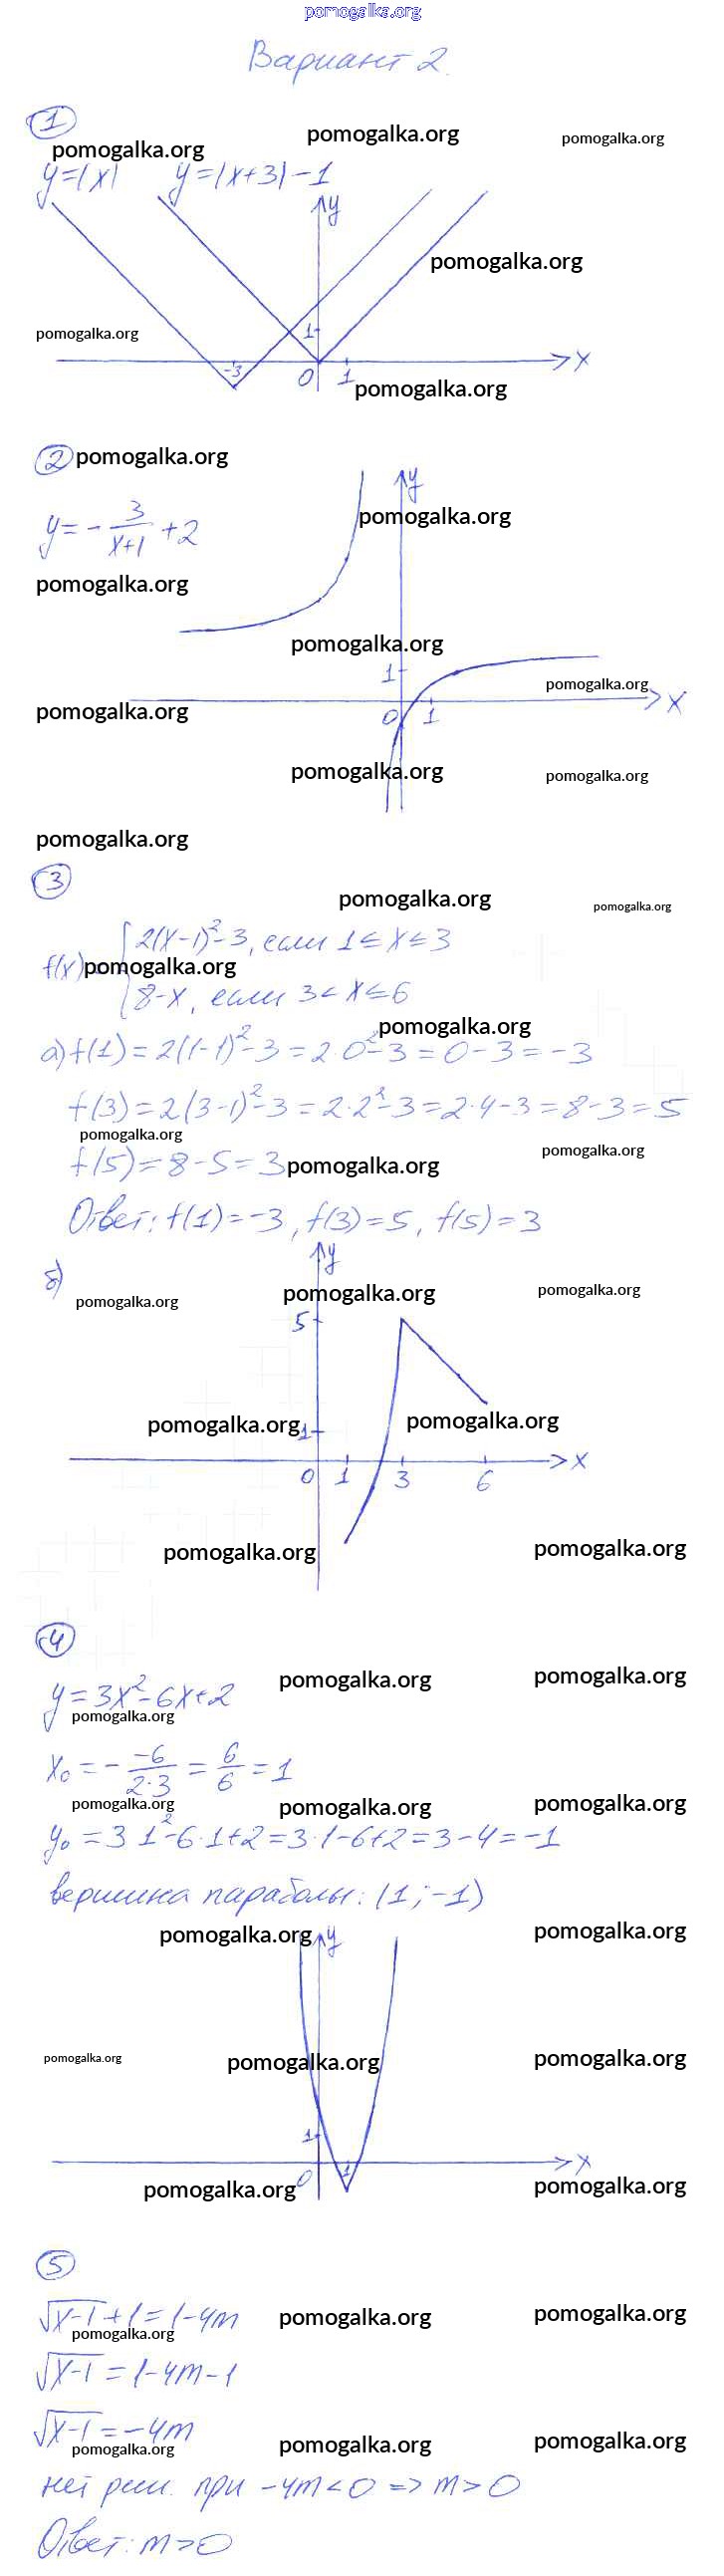 pomogalka.org
Вариант 2.
1
pomogalka.org pomogalka.org pomogalka.org
y=|x| y=|x+3|-1
y
pomogalka.org
pomogalka.org
1
-3 0 1 x
pomogalka.org
2 pomogalka.org
y
y = - 3/(x+1) + 2
pomogalka.org
pomogalka.org
pomogalka.org
1
pomogalka.org
pomogalka.org 0 1 x
pomogalka.org pomogalka.org
pomogalka.org
3
pomogalka.org pomogalka.org
2(x-1)²-3, если 1≤x≤3
f(x) = pomogalka.org
8-x, если 3<x≤6
pomogalka.org
а) f(1) = 2(1-1)²-3 = 2·0²-3 = 0-3 = -3
f(3) = 2(3-1)²-3 = 2·2²-3 = 2·4-3 = 8-3 = 5
pomogalka.org pomogalka.org
f(5) = 8-5 = 3 pomogalka.org
Ответ: f(1) = -3, f(3) = 5, f(5) = 3
б) y
pomogalka.org pomogalka.org pomogalka.org
5
pomogalka.org 1 pomogalka.org
0 1 3 6 x
pomogalka.org pomogalka.org
4
pomogalka.org pomogalka.org
y = 3x²-6x+2
pomogalka.org
x₀ = - -6/(2·3) = 6/6 = 1
pomogalka.org pomogalka.org pomogalka.org
y₀ = 3 1²-6·1+2 = 3·1-6+2 = 3-4 = -1
вершина параболы: (1; -1)
pomogalka.org y pomogalka.org
pomogalka.org pomogalka.org pomogalka.org
1
0 1 x
pomogalka.org pomogalka.org
5
√(x-1) + 1 = 1-4m
pomogalka.org pomogalka.org pomogalka.org
√(x-1) = 1-4m-1
√(x-1) = -4m
pomogalka.org pomogalka.org pomogalka.org
нет реш. при -4m<0 => m>0
Ответ: m>0